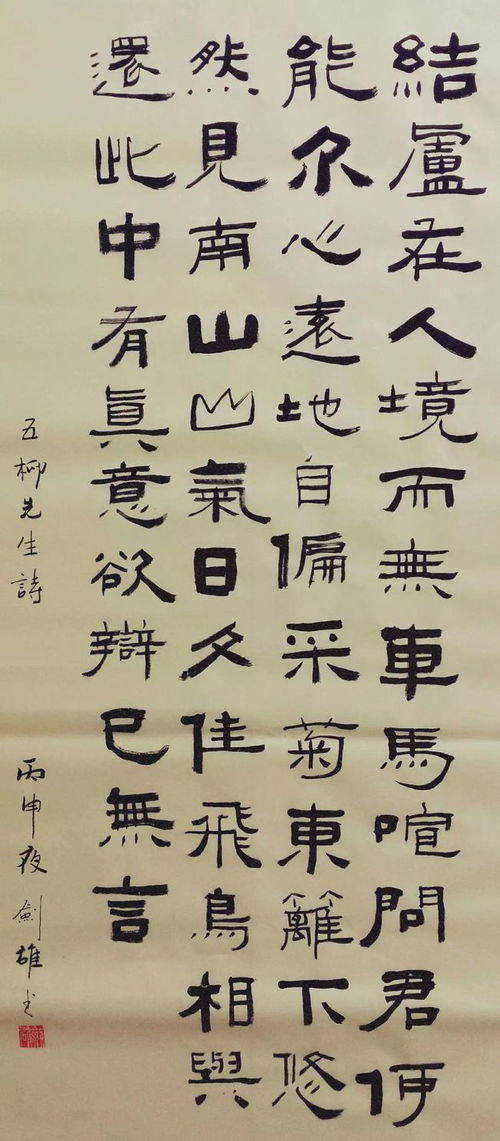 結廬在人境而無車馬喧問君何
能尔心遠地自偏采菊東籬下悠
然見南山山氣日夕佳飛鳥相與
還此中有眞意欲辯已無言
五柳先生詩
丙申夜 劍雄书